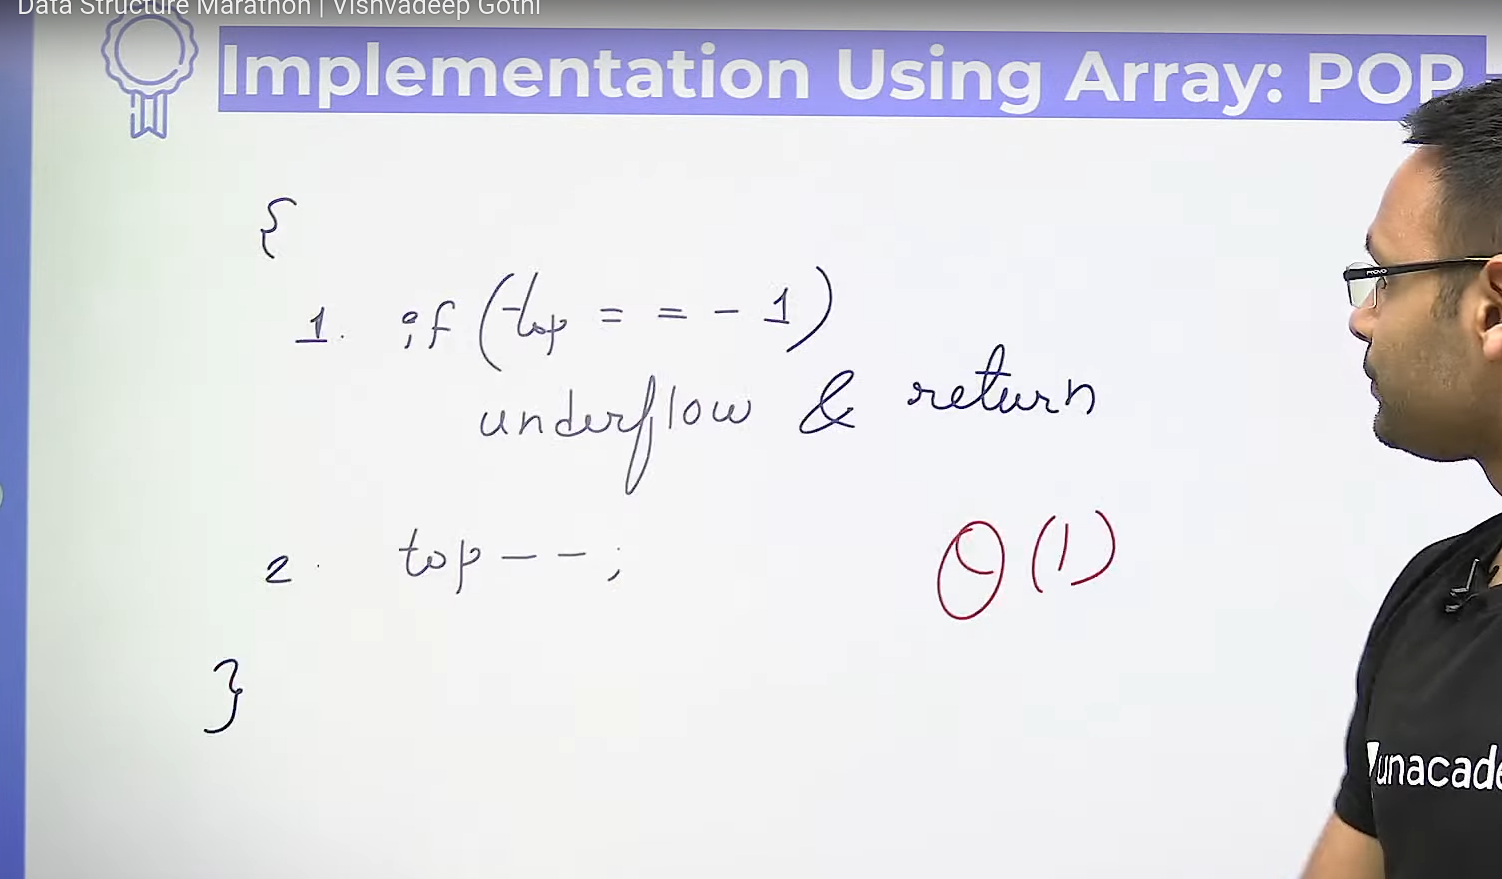 Data Structure Marathon | Vishvadeep Gothi
Implementation Using Array: POP
{
1. if (top == -1)
underflow & return
2. top--;
θ(1)
}
provo
unacade